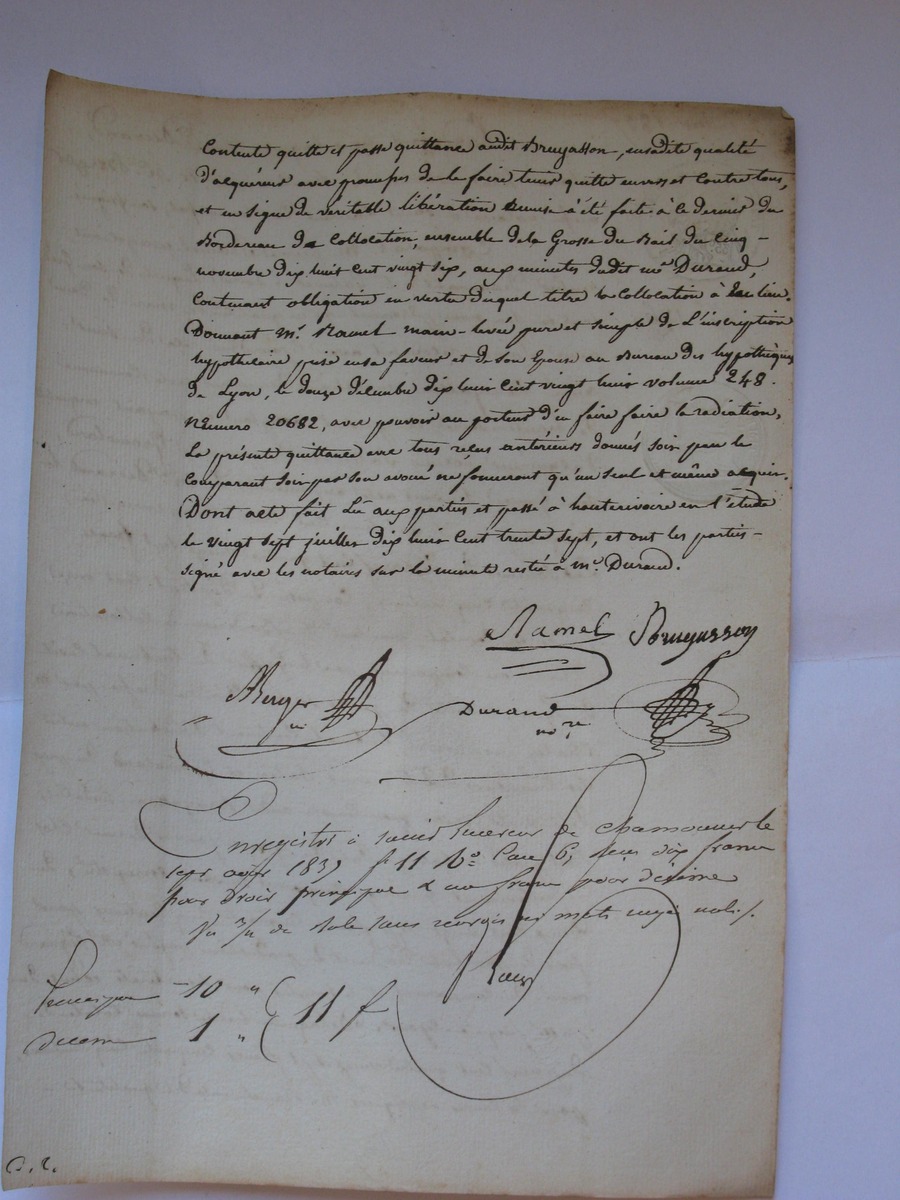 Contente quitte et passe quittance audit Bruyasson, ensadite qualité
d'acquéreur avec promesse de le faire tenir quitte envers et contre tous,
et en signe de veritable libération remise à été faite à ce dernier du
Bordereau de Collocation, ensemble dela Grosse du Bail du Cinq -
novembre dix huit cent vingt six, aux minutes dudit me Durand,
Contenant obligation en vertu duquel titre la Collocation à eu lieu.
Donnant Mr. Ramel main-levée pure et simple de L'inscription
hypothécaire prise ensa faveur et de son Epouse au Bureau des hypothèques
de Lyon, le douze décembre dix huit Cent vingt huit volume 248.
Numero 20682, avec pouvoir au porteur d'en faire faire la radiation,
La présente quittance avec tous reçus antérieurs donnés soit par le
Comparant soit par son avoué ne formeront qu'un seul et même acquit.
Dont acte fait Lû aux parties et passé à hauterivoire en l'étude
le vingt sept juillet dix huit Cent trente sept, et ont les parties -
signé avec les notaires sur la minute resté à me. Durand.
Ramel Bruyasson
Berger
Durand
nore
Enregistré à Saint Laurent de Chamousset le
sept août 1837 fo 11 Vo Case 6, reçu dix francs
pour droit principal & un franc pour décime
de
principal 10 "
décime 1 " 11 f